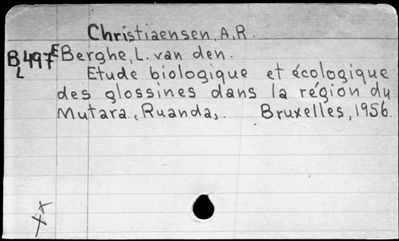 Christiaensen, A.R.
BL497E Berghe, L. van den.
Etude biologique et écologique
des glossines dans la région du
Mutara, (Ruanda).   Bruxelles, 1956.